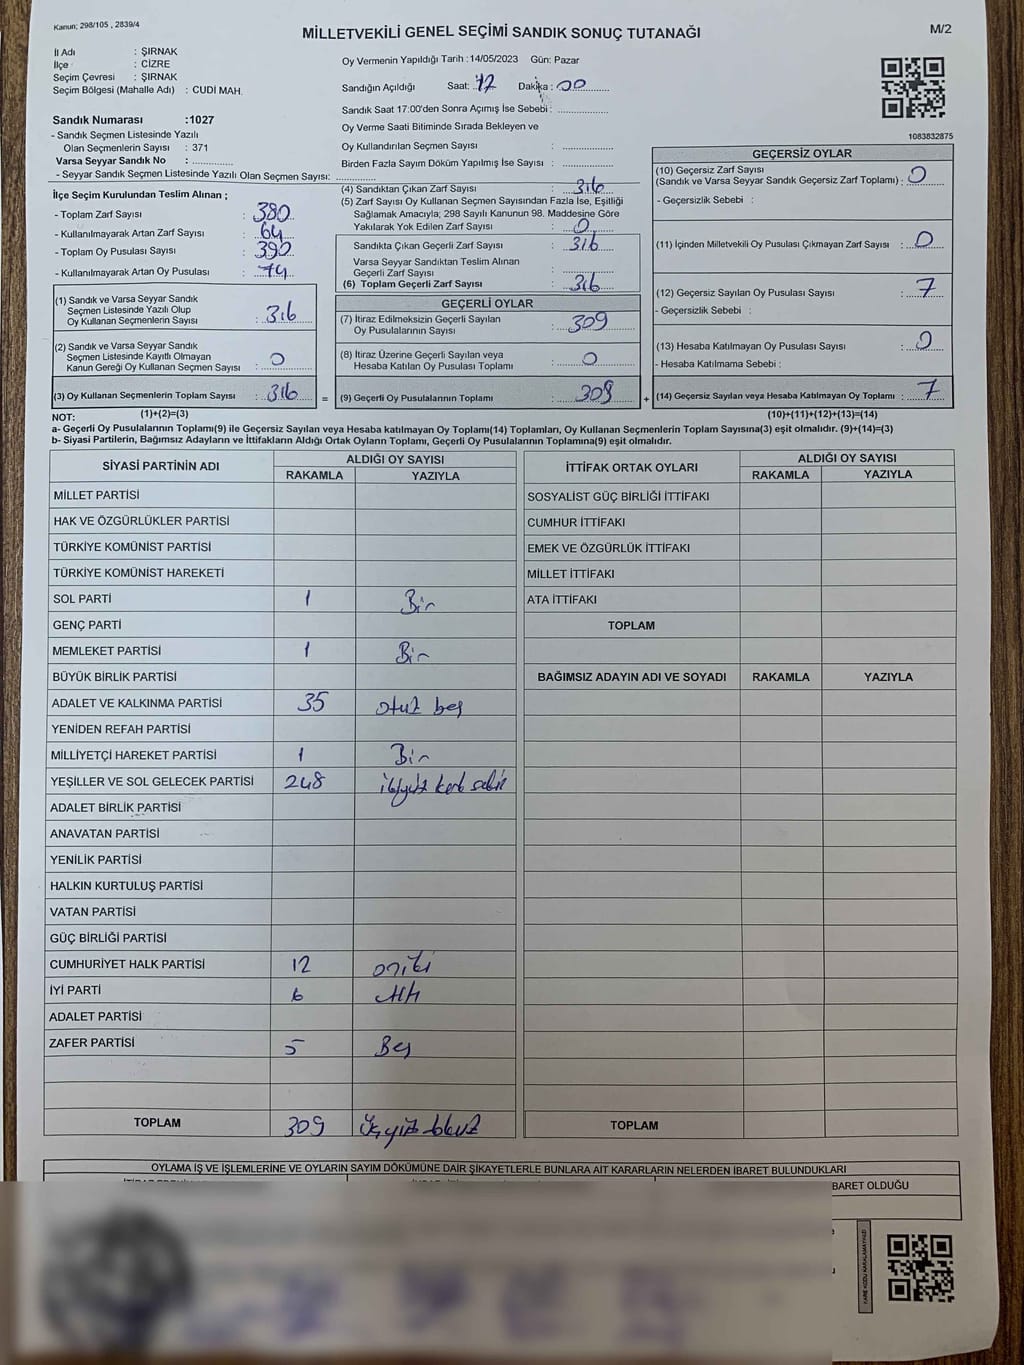 Kanun; 298/105 , 2839/4
MİLLETVEKİLİ GENEL SEÇİMİ SANDIK SONUÇ TUTANAĞI
M/2
İl Adı : ŞIRNAK
İlçe : CİZRE
Seçim Çevresi : ŞIRNAK
Seçim Bölgesi (Mahalle Adı) : CUDİ MAH.
Sandık Numarası :1027
- Sandık Seçmen Listesinde Yazılı
Olan Seçmenlerin Sayısı : 371
Varsa Seyyar Sandık No : ..............
- Seyyar Sandık Seçmen Listesinde Yazılı Olan Seçmen Sayısı: ..............
Oy Vermenin Yapıldığı Tarih :14/05/2023 Gün: Pazar
Sandığın Açıldığı Saat: Dakika : 00
Sandık Saat 17:00'den Sonra Açımış İse Sebebi : ..............
Oy Verme Saati Bitiminde Sırada Bekleyen ve
Oy Kullandırılan Seçmen Sayısı : ..............
Birden Fazla Sayım Döküm Yapılmış İse Sayısı : ..............
1083832875
İlçe Seçim Kurulundan Teslim Alınan ;
- Toplam Zarf Sayısı : 380
- Kullanılmayarak Artan Zarf Sayısı : 64
- Toplam Oy Pusulası Sayısı : 390
- Kullanılmayarak Artan Oy Pusulası : 74
(1) Sandık ve Varsa Seyyar Sandık
Seçmen Listesinde Yazılı Olup
Oy Kullanan Seçmenlerin Sayısı : 316
(2) Sandık ve Varsa Seyyar Sandık
Seçmen Listesinde Kayıtlı Olmayan
Kanun Gereği Oy Kullanan Seçmen Sayısı : 0
(3) Oy Kullanan Seçmenlerin Toplam Sayısı : 316
(4) Sandıktan Çıkan Zarf Sayısı : 316
(5) Zarf Sayısı Oy Kullanan Seçmen Sayısından Fazla İse, Eşitliği
Sağlamak Amacıyla; 298 Sayılı Kanunun 98. Maddesine Göre
Yakılarak Yok Edilen Zarf Sayısı : 0
Sandıkta Çıkan Geçerli Zarf Sayısı : 316
Varsa Seyyar Sandıktan Teslim Alınan
Geçerli Zarf Sayısı : ..............
(6) Toplam Geçerli Zarf Sayısı : 316
GEÇERLİ OYLAR
(7) İtiraz Edilmeksizin Geçerli Sayılan
Oy Pusulalarının Sayısı : 309
(8) İtiraz Üzerine Geçerli Sayılan veya
Hesaba Katılan Oy Pusulası Toplamı : 0
= (9) Geçerli Oy Pusulalarının Toplamı : 309 +
GEÇERSİZ OYLAR
(10) Geçersiz Zarf Sayısı
(Sandık ve Varsa Seyyar Sandık Geçersiz Zarf Toplamı) : 0
- Geçersizlik Sebebi :
(11) İçinden Milletvekili Oy Pusulası Çıkmayan Zarf Sayısı : 0
(12) Geçersiz Sayılan Oy Pusulası Sayısı : 7
- Geçersizlik Sebebi :
(13) Hesaba Katılmayan Oy Pusulası Sayısı : 0
- Hesaba Katılmama Sebebi :
(14) Geçersiz Sayılan veya Hesaba Katılmayan Oy Toplamı : 7
NOT: (1)+(2)=(3) (10)+(11)+(12)+(13)=(14)
a- Geçerli Oy Pusulalarının Toplamı(9) ile Geçersiz Sayılan veya Hesaba katılmayan Oy Toplamı(14) Toplamları, Oy Kullanan Seçmenlerin Toplam Sayısına(3) eşit olmalıdır. (9)+(14)=(3)
b- Siyasi Partilerin, Bağımsız Adayların ve İttifakların Aldığı Ortak Oyların Toplamı, Geçerli Oy Pusulalarının Toplamına(9) eşit olmalıdır.
SİYASİ PARTİNİN ADI ALDIĞI OY SAYISI
RAKAMLA YAZIYLA
MİLLET PARTİSİ
HAK VE ÖZGÜRLÜKLER PARTİSİ
TÜRKİYE KOMÜNİST PARTİSİ
TÜRKİYE KOMÜNİST HAREKETİ
SOL PARTİ 1 Bir
GENÇ PARTİ
MEMLEKET PARTİSİ 1 Bir
BÜYÜK BİRLİK PARTİSİ
ADALET VE KALKINMA PARTİSİ 35 otuz beş
YENİDEN REFAH PARTİSİ
MİLLİYETÇİ HAREKET PARTİSİ 1 Bir
YEŞİLLER VE SOL GELECEK PARTİSİ 248 ikiyüz kırk sekiz
ADALET BİRLİK PARTİSİ
ANAVATAN PARTİSİ
YENİLİK PARTİSİ
HALKIN KURTULUŞ PARTİSİ
VATAN PARTİSİ
GÜÇ BİRLİĞİ PARTİSİ
CUMHURİYET HALK PARTİSİ 12 oniki
İYİ PARTİ 6 Altı
ADALET PARTİSİ
ZAFER PARTİSİ 5 Beş
TOPLAM 309 üçyüz dokuz
İTTİFAK ORTAK OYLARI ALDIĞI OY SAYISI
RAKAMLA YAZIYLA
SOSYALİST GÜÇ BİRLİĞİ İTTİFAKI
CUMHUR İTTİFAKI
EMEK VE ÖZGÜRLÜK İTTİFAKI
MİLLET İTTİFAKI
ATA İTTİFAKI
TOPLAM
BAĞIMSIZ ADAYIN ADI VE SOYADI RAKAMLA YAZIYLA
TOPLAM
OYLAMA İŞ VE İŞLEMLERİNE VE OYLARIN SAYIM DÖKÜMÜNE DAİR ŞİKAYETLERLE BUNLARA AİT KARARLARIN NELERDEN İBARET BULUNDUKLARI
BARET OLDUĞU
KARE KODU KARALAMAYINIZ